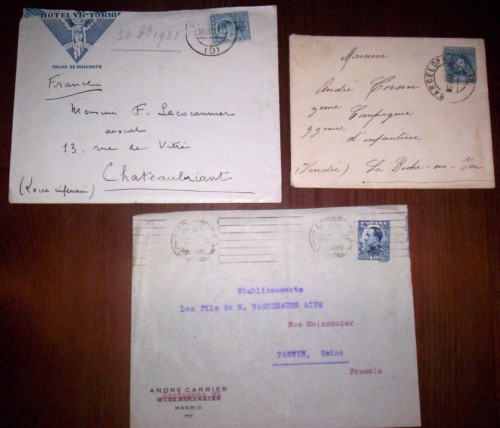 HOTEL VICTORIA
PALMA DE MALLORCA
30 8bre 1931
1931
France
Monsieur F. Lecocannier
avocat
13, rue de Vitré
Chateaubriant
(Loire inférieure)
BARCELONA
Monsieur
André
Compagnie
99eme
d'infanterie
(Vendée) La Roche-sur-Yon
Etablissements
Les Fils de M. AINE
Rue Meissonnier
PANTIN, Seine
Francia
ANDRE CARRIER
MADRID